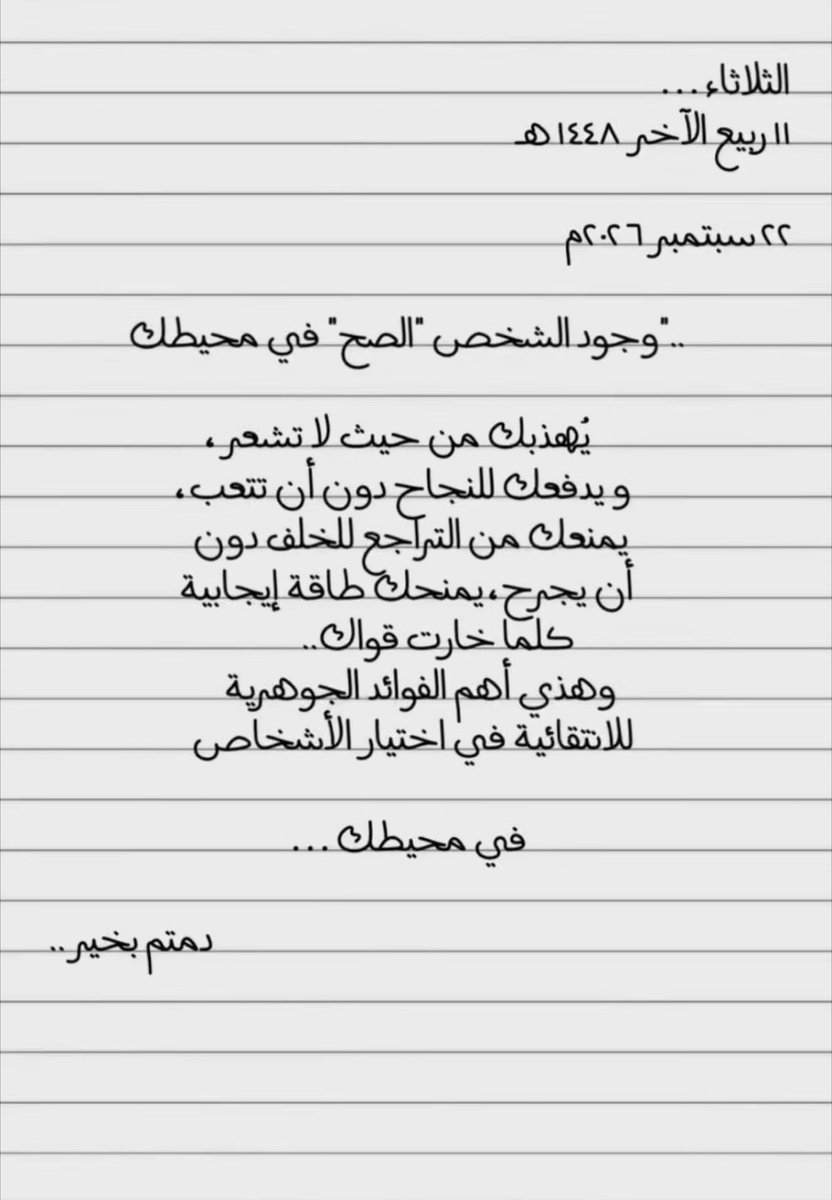 الثلاثاء...
١١ ربيع الآخر ١٤٤٨هـ
٢٢ سبتمبر ٢٠٢٦م
.."وجود الشخص "الصح" في محيطك
يُهذبك من حيث لا تشعر،
ويدفعك للنجاح دون أن تتعب،
يمنعك من التراجع للخلف دون
أن يجرح،يمنحك طاقة إيجابية
كلما خارت قواك..
وهذي أهم الفوائد الجوهرية
للانتقائية في اختيار الأشخاص
في محيطك ...
دمتم بخير..